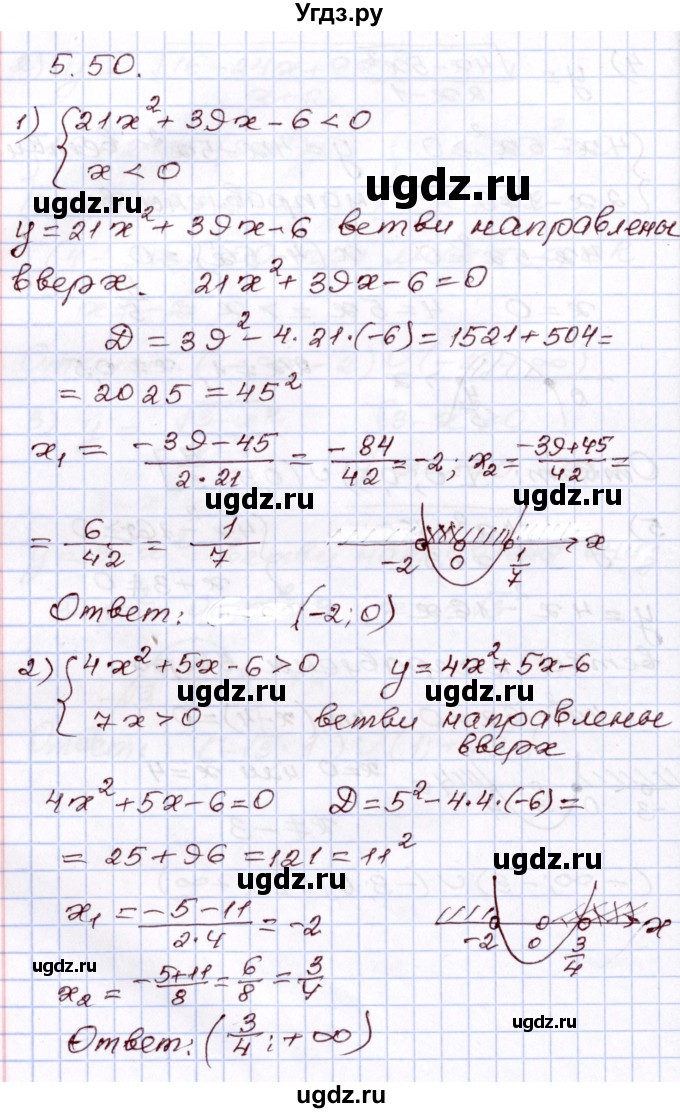 Угдз.ру
5.50.
1) { 21x² + 39x - 6 < 0
x < 0
ugdz.ru ugdz.ru
y = 21x² + 39x - 6 ветви направлены
вверх. 21x² + 39x - 6 = 0
Д = 39² - 4·21·(-6) = 1521 + 504 =
= 2025 = 45²
ugdz.ru
x₁ = (-39-45)/(2·21) = -84/42 = -2; x₂ = (-39+45)/42 =
ugdz.ru ugdz.ru
= 6/42 = 1/7 -2 0 1/7 x
Ответ: (-2; 0)
2) { 4x² + 5x - 6 > 0 y = 4x² + 5x - 6
ugdz.ru ugdz.ru
7x > 0 ветви направлены
вверх
4x² + 5x - 6 = 0 Д = 5² - 4·4·(-6) =
= 25 + 96 = 121 = 11²
ugdz.ru ugdz.ru
x₁ = (-5-11)/(2·4) = -2 -2 0 3/4 x
ugdz.ru
x₂ = (-5+11)/8 = 6/8 = 3/4
ugdz.ru
Ответ: (3/4; +∞)
ugdz.ru